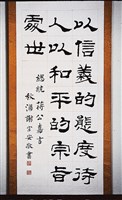 以信義的態度待
人以和平的宗旨
處世
總統 蔣公嘉言
秋浦謝宗安敬書